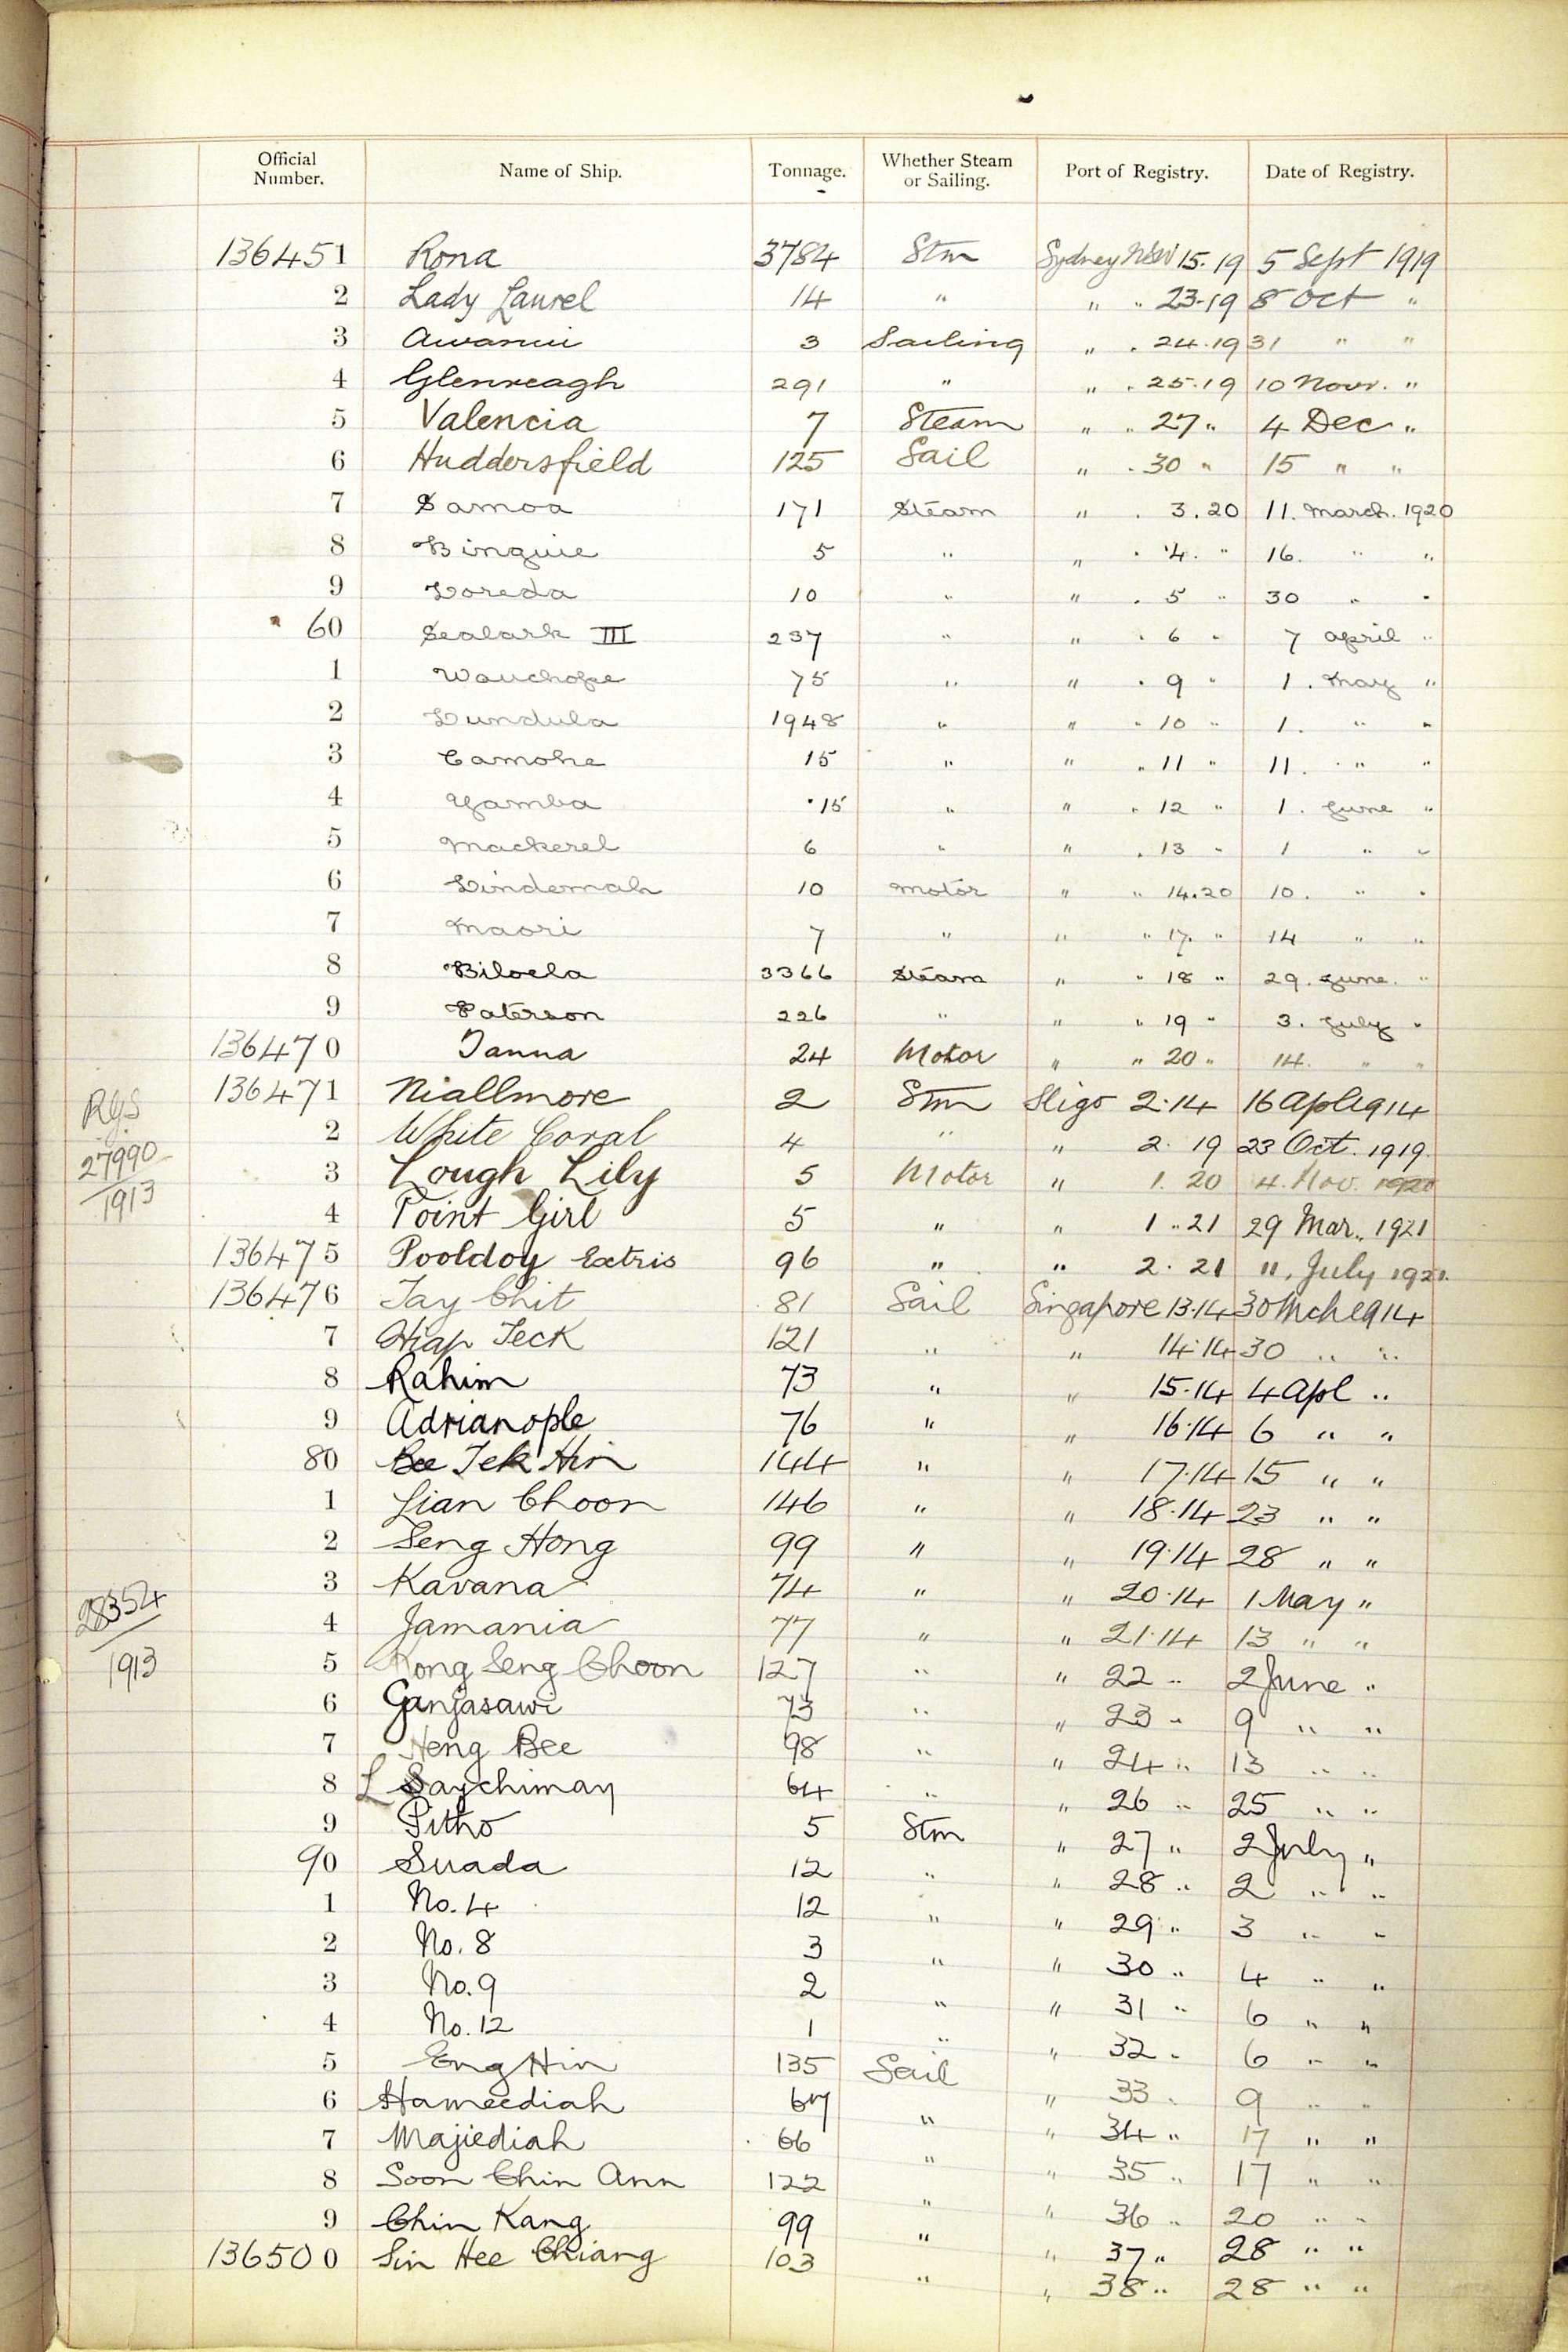 Official Number. Name of Ship. Tonnage. Whether Steam or Sailing. Port of Registry. Date of Registry.
136451 Rona 3784 Stm Sydney NSW 15.19 5 Sept 1919
2 Lady Laurel 14 " " " 23.19 8 Oct "
3 Awanui 3 Sailing " " 24.19 31 " "
4 Glenreagh 291 " " " 25.19 10 Novr. "
5 Valencia 7 Steam " " 27 " 4 Dec "
6 Huddersfield 125 Sail " " 30 " 15 " "
7 Samoa 171 Steam " " 3.20 11. March. 1920
8 Binguie 5 " " " 4. " 16. " "
9 Loreda 10 " " " 5 " 30 " "
60 Sealark III 237 " " " 6 " 7 April "
1 Wauchope 75 " " " 9 " 1. May "
2 Lundula 1948 " " " 10 " 1. " "
3 Camohe 15 " " " 11 " 11. " "
4 Yamba 15 " " " 12 " 1. June "
5 Mackerel 6 " " " 13 " 1 " "
6 Lindemah 10 Motor " " 14.20 10. " "
7 Maori 7 " " " 17. " 14 " "
8 Biloela 3366 Steam " " 18 " 29. June. "
9 Paterson 226 " " " 19 " 3. July "
136470 Tanna 24 Motor " " 20 " 14. " "
RGS 136471 Niallmore 2 Stm Sligo 2.14 16 Apl 1914
2 White Coral 4 " " 2. 19 23 Oct. 1919.
27990/1913 3 Lough Lily 5 Motor " 1. 20 4. Nov. 1920
4 Point Girl 5 " " 1..21 29 Mar. 1921
136475 Pooldoy Extris 96 " " 2. 21 11. July 1921.
136476 Tay Chit 81 Sail Singapore 13.14 30 Mch 1914
7 Hiap Teck 121 " " 14.14 30 " "
8 Rahim 73 " " 15.14 4 Apl "
9 Adrianople 76 " " 16.14 6 " "
80 Bee Tek Hin 144 " " 17.14 15 " "
1 Lian Choon 146 " " 18.14 23 " "
2 Seng Hong 99 " " 19.14 28 " "
3 Kavana 74 " " 20.14 1 May "
28354/1913 4 Jamania 77 " " 21.14 13 " "
5 Kong Seng Choon 127 " " 22 " 2 June "
6 Ganjasawi 73 " " 23 " 9 " "
7 Heng Bee 98 " " 24 " 13 " "
8 L Saychimay 64 " " 26 " 25 " "
9 Pitho 5 Stm " 27 " 2 July "
90 Suada 12 " " 28 " 2 " "
1 No. 4 12 " " 29 " 3 " "
2 No. 8 3 " " 30 " 4 " "
3 No. 9 2 " " 31 " 6 " "
4 No. 12 1 " " 32 " 6 " "
5 Eng Hin 135 Sail " 33 " 9 " "
6 Hameediah 67 " " 34 " 17 " "
7 Majiediah 66 " " 35 " 17 " "
8 Soon Chin Ann 122 " " 36 " 20 " "
9 Chin Kang 99 " " 37 " 28 " "
136500 Sin Hee Chiang 103 " " 38 " 28 " "